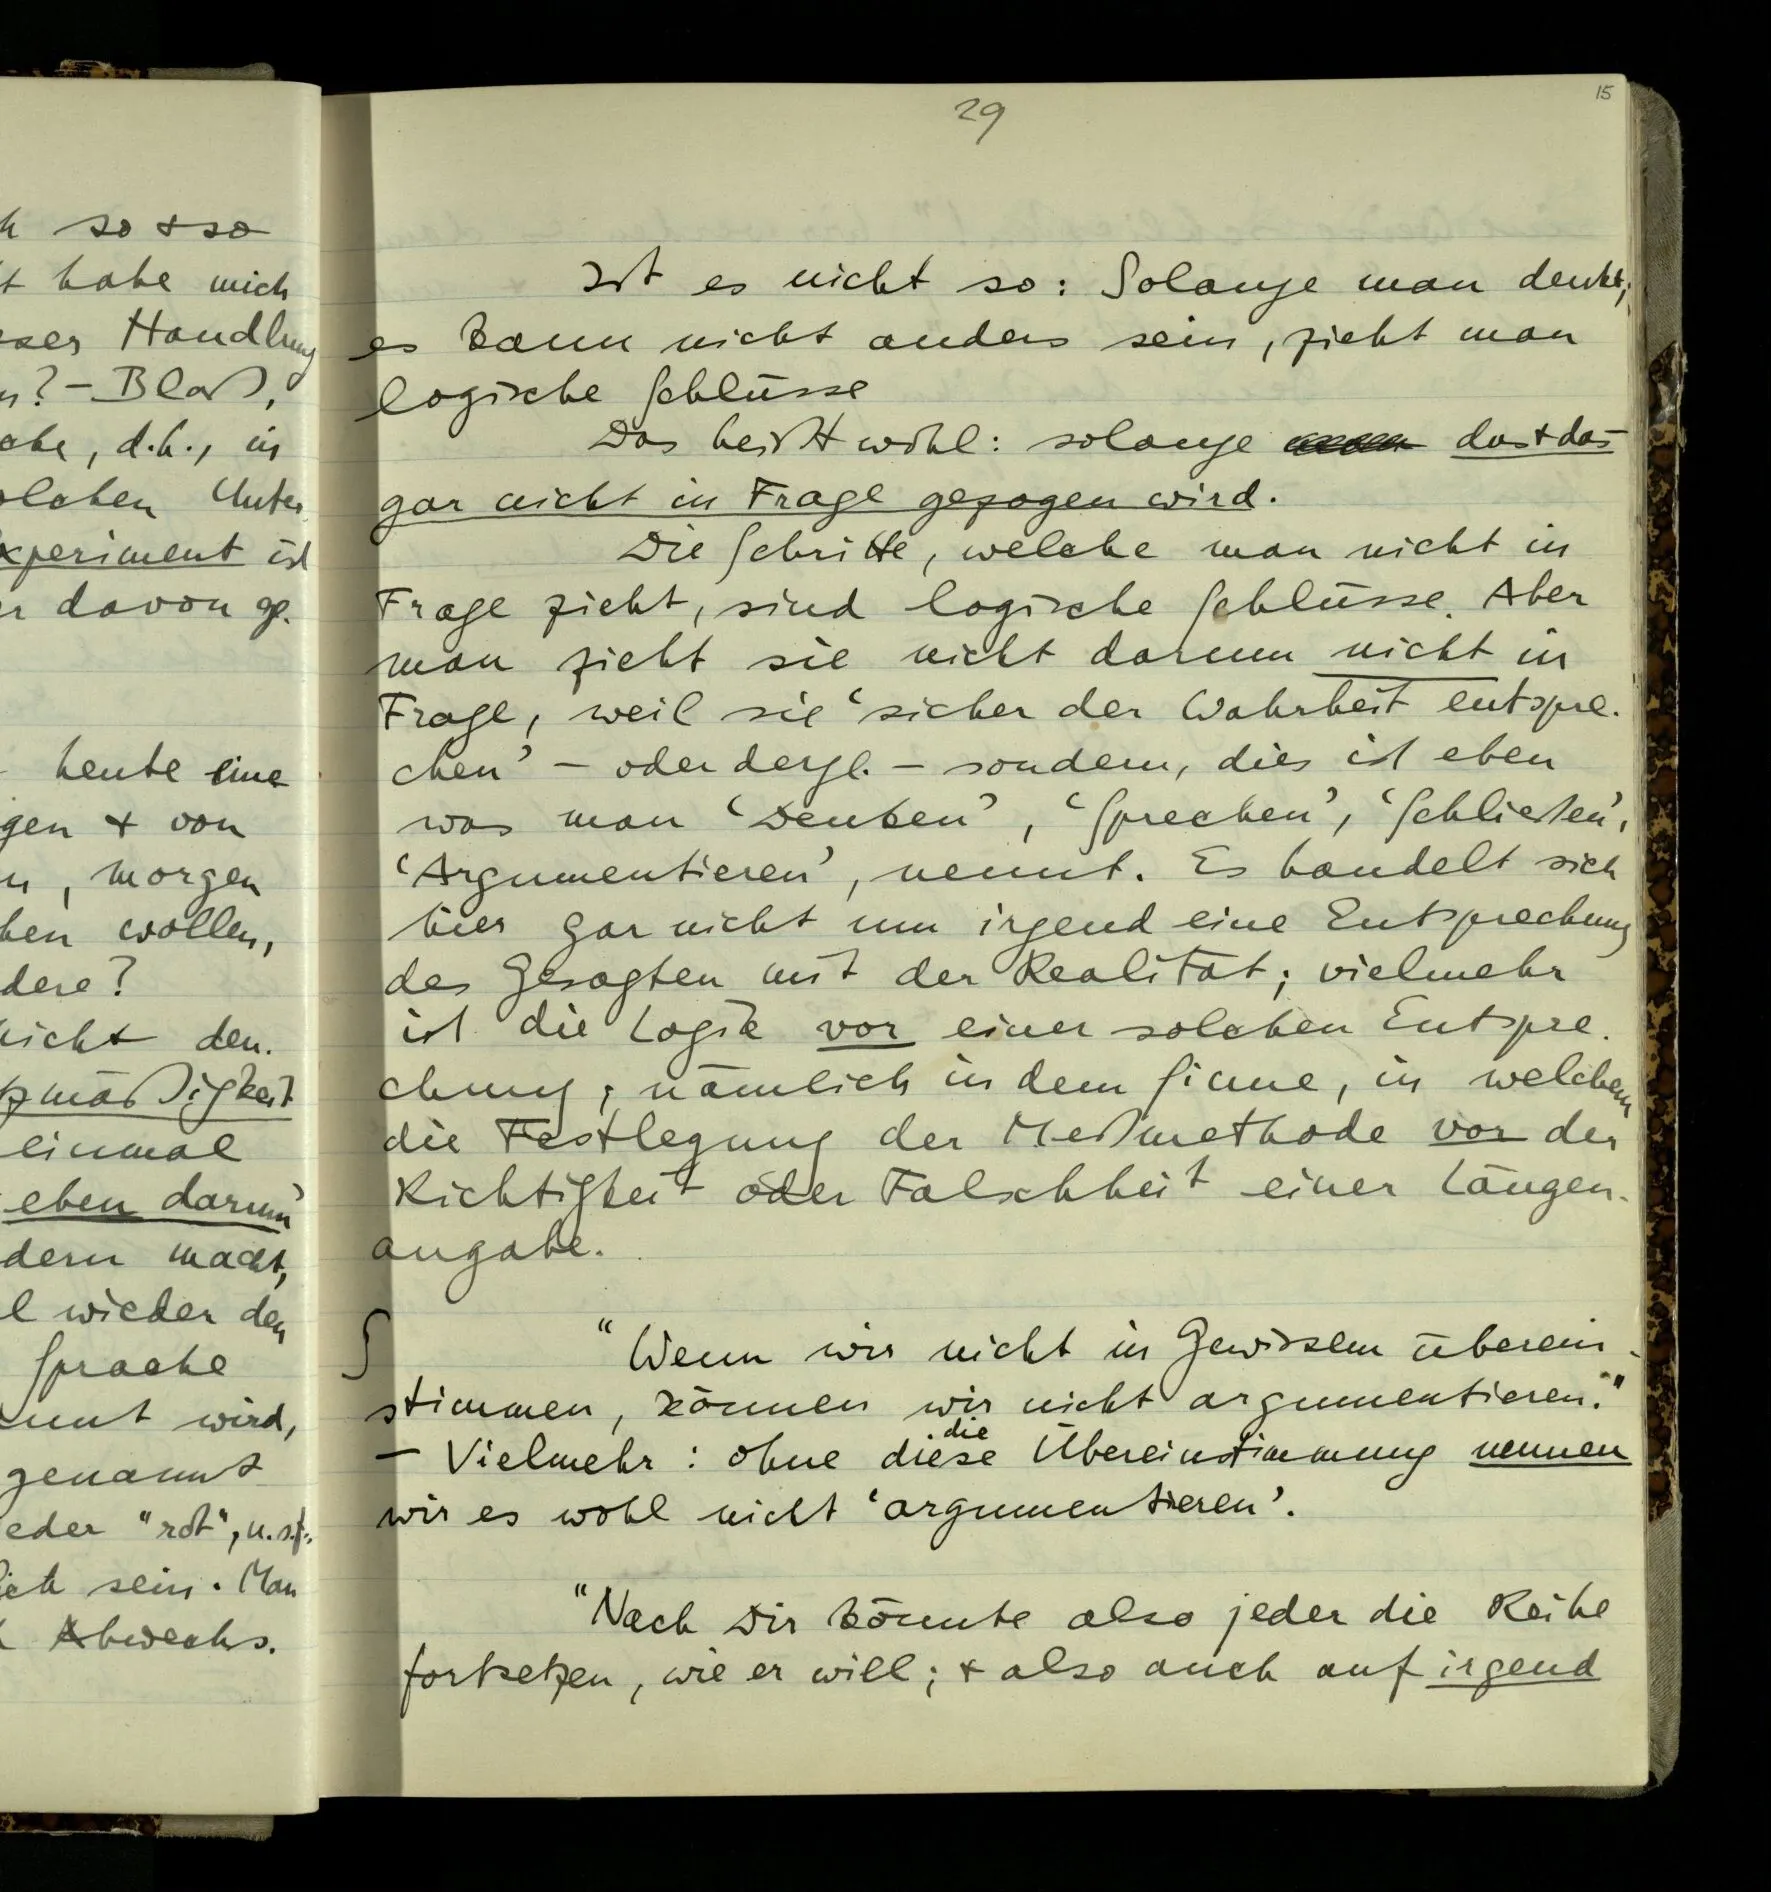 h so + so
t habe mich
ser Handlung
n? – Bloß,
che, d.h., in
olchen Unter
xperiment ist
r davon ge.
heute eine
gen + von
n, morgen
hen wollen,
dere?
nicht den.
zmäßigkeit
einmal
eben darum
dern macht,
l wieder den
Sprache
nnt wird,
genannt
eder "rot", u.s.f.
ich sein. Man
Abwechs.
29
15
Ist es nicht so: Solange man denkt,
es kann nicht anders sein, zieht man
logische Schlüsse
Das heißt wohl: solange das + das
gar nicht in Frage gezogen wird.
Die Schritte, welche man nicht in
Frage zieht, sind logische Schlüsse. Aber
man zieht sie nicht darum nicht in
Frage, weil sie 'sicher der Wahrheit entspre-
chen' – oder dergl. – sondern, dies ist eben
was man 'Denken', 'Sprechen', 'Schließen',
'Argumentieren', nennt. Es handelt sich
hier gar nicht um irgend eine Entsprechung
des Gesagten mit der Realität; vielmehr
ist die Logik vor einer solchen Entspre-
chung; nämlich in dem Sinne, in welchem
die Festlegung der Meßmethode vor der
Richtigkeit oder Falschheit einer Längen-
angabe.
∫ "Wenn wir nicht in Gewissem überein-
stimmen, können wir nicht argumentieren."
die
– Vielmehr: ohne diese Übereinstimmung nennen
wir es wohl nicht 'argumentieren'.
"Nach Dir könnte also jeder die Reihe
fortsetzen, wie er will; + also auch auf irgend